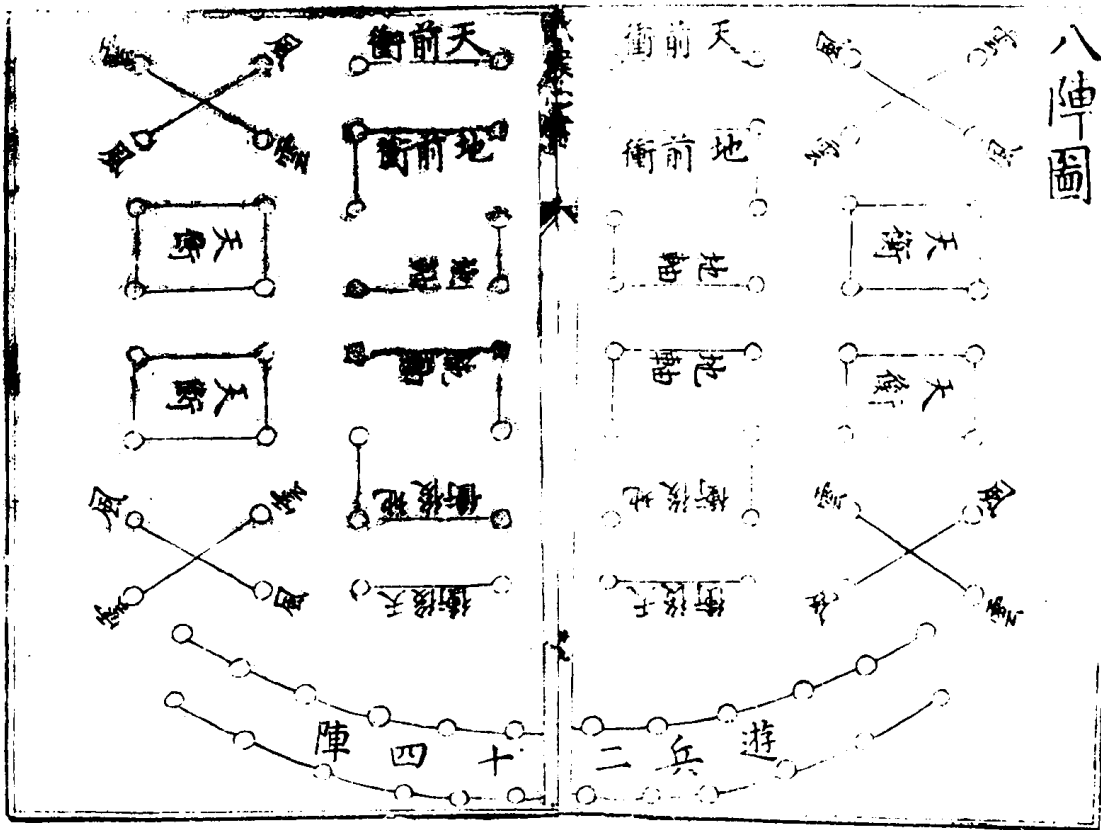 八陣圖
雲
風
風
雲
天衡
天衡
風
雲
雲
天前衝
地前衝
地軸
地軸
地後衝
天後衝
天前衝
地前衝
地軸
地軸
地後衝
天後衝
風
雲
雲
風
天衡
天衡
雲
風
風
雲
遊兵二十四陣